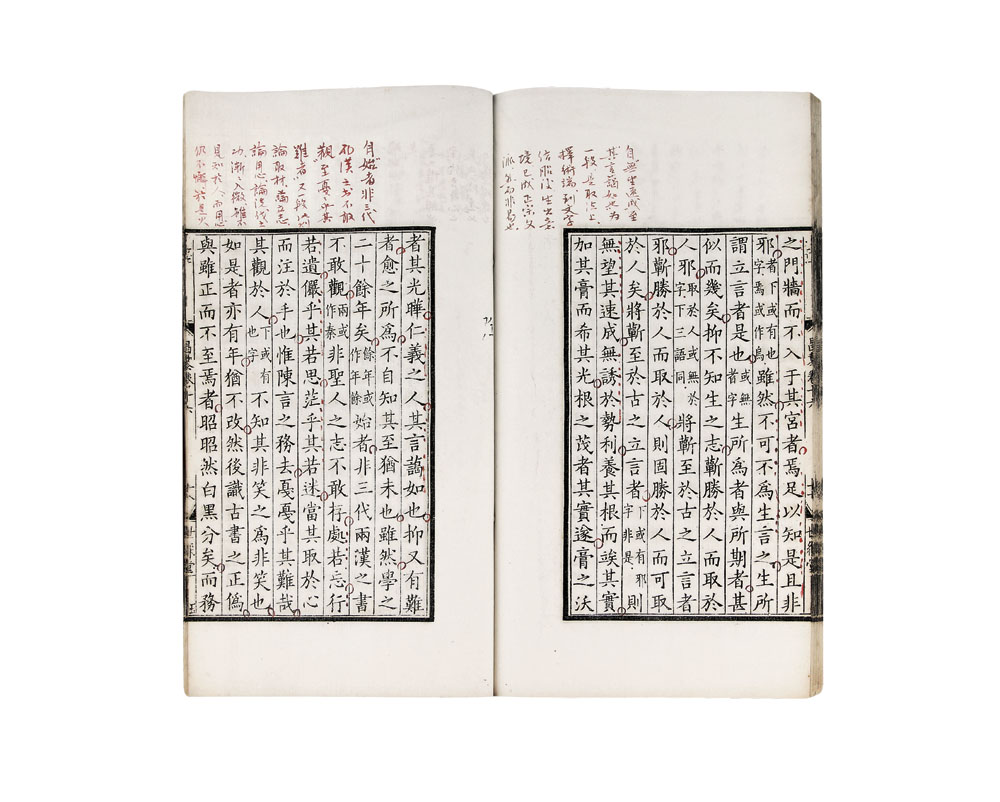 之門牆而不入于其宮者焉足以知是且非
邪者下或有也字焉或作烏雖然不可不爲生言之生所
謂立言者是也或無者字生所爲者與所期者甚
似而幾矣抑不知生之志蘄勝於人而取於
人邪取於人或無於人邪字下三語同將蘄至於古之立言者
邪蘄勝於人而取於人則固勝於人而可取
於人矣將蘄至於古之立言者下或有邪字非是則
無望其速成無誘於勢利養其根而竢其實
加其膏而希其光根之茂者其實遂膏之沃
者其光曄仁義之人其言藹如也抑又有難
者愈之所爲不自知其至猶未也雖然學之
二十餘年矣餘年或作年餘始者非三代兩漢之書
不敢觀兩或作秦非聖人之志不敢存處若忘行
若遺儼乎其若思茫乎其若迷當其取於心
而注於手也惟陳言之務去戛戛乎其難哉
其觀於人下或有也字不知其非笑之爲非笑也
如是者亦有年猶不改然後識古書之正僞
與雖正而不至焉者昭昭然白黑分矣而務
自無望速成至
其言藹如也爲
一段是取法上
擇術端到文字
結胎後生出
境已成正宗又
自始者非三代
兩漢之書不敢
觀至戛戛乎其
難者又一段